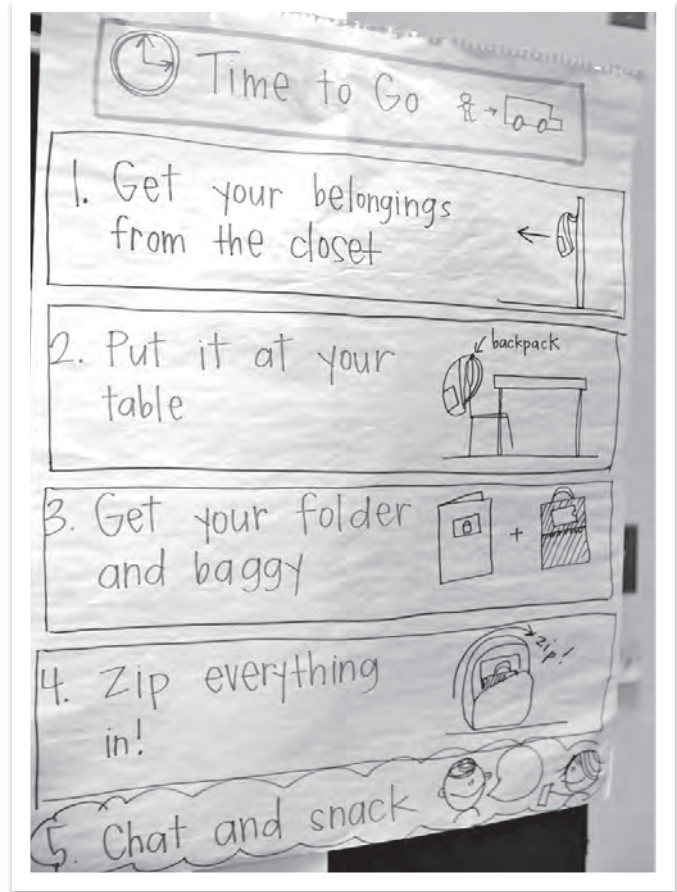 Time to Go
1. Get your belongings
from the closet
2. Put it at your
table
backpack
3. Get your folder
and baggy
4. Zip everything
in!
zip!
5. Chat and snack